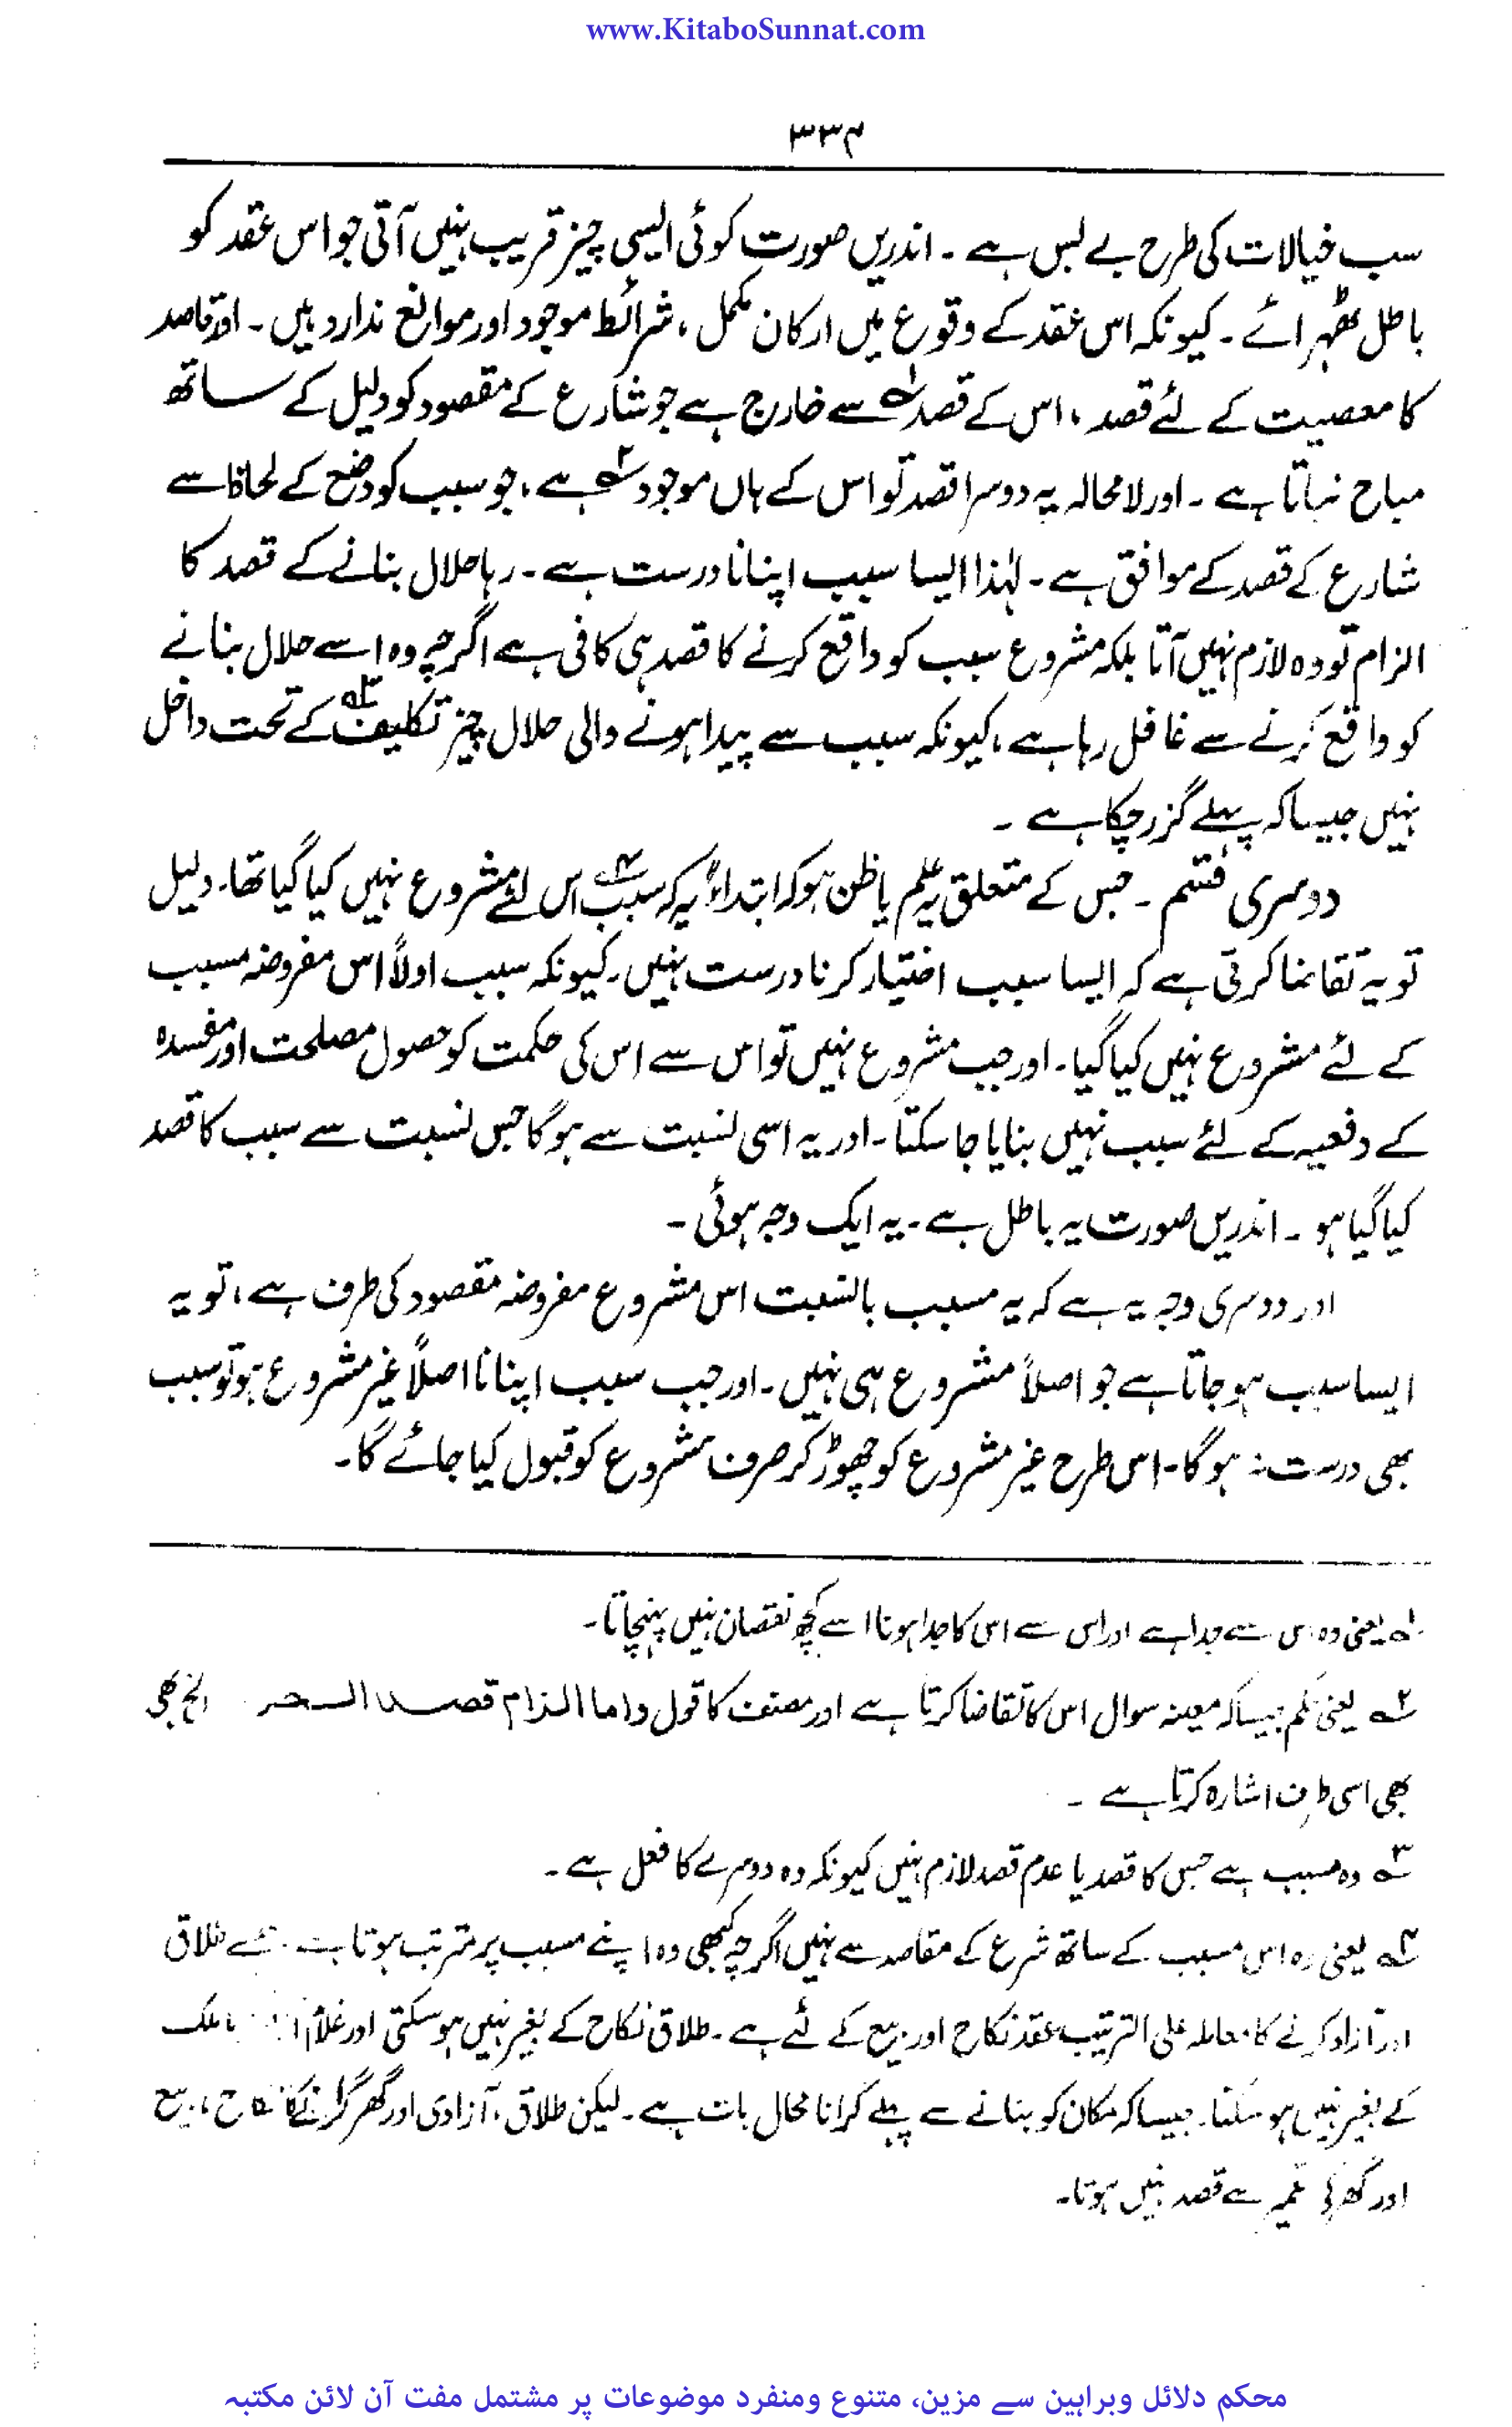 www.KitaboSunnat.com
۳۳۴
سب خیالات کی طرح بے بس ہے ۔ اندریں صورت کوئی ایسی چیز قریب نہیں آتی جو اس عقد کو
باطل ٹھہرائے ۔ کیونکہ اس عقد کے وقوع میں ارکان مکمل ، شرائط موجود اور موانع ندارد ہیں ۔ اور قاصد
کا معصیت کے لئے قصد ، اس کے قصد ۱؎ سے خارج ہے جو شارع کے مقصود کو دلیل کے ساتھ
مباح بناتا ہے ۔ اور لامحالہ یہ دوسرا قصد تو اس کے ہاں موجود ۲؎ ہے ، جو سبب کو وضع کے لحاظ سے
شارع کے قصد کے موافق ہے ۔ لہٰذا ایسا سبب اپنانا درست ہے ۔ رہا حلال بنانے کے قصد کا
الزام تو وہ لازم نہیں آتا بلکہ مشروع سبب کو واقع کرنے کا قصد ہی کافی ہے اگرچہ وہ اسے حلال بنانے
کو واقع کرنے سے غافل رہا ہے ، کیونکہ سبب سے پیدا ہونے والی حلال چیز تکلیف ۳؎ کے تحت داخل
نہیں جیسا کہ پہلے گزر چکا ہے ۔
دوسری قسم ۔ جس کے متعلق یہ علم یا ظن ہو کہ ابتداءً یہ کہ سبب ۴؎ اس لئے مشروع نہیں کیا گیا تھا ۔ دلیل
تو یہ تقاضا کرتی ہے کہ ایسا سبب اختیار کرنا درست نہیں ۔ کیونکہ سبب اولاً اس مفروضہ مسبب
کے لئے مشروع نہیں کیا گیا ۔ اور جب مشروع نہیں تو اس سے اس کی حکمت کو حصول مصلحت اور مفسدہ
کے دفعیہ کے لئے سبب نہیں بنایا جا سکتا ۔ اور یہ اسی نسبت سے ہو گا جس نسبت سے سبب کا قصد
کیا گیا ہو ۔ اندریں صورت یہ باطل ہے ۔ یہ ایک وجہ ہوئی ۔
اور دوسری وجہ یہ ہے کہ یہ مسبب بالنسبت اس مشروع مفروضہ مقصود کی طرف ہے ، تو یہ
ایسا سبب ہو جاتا ہے جو اصلاً مشروع ہی نہیں ۔ اور جب سبب اپنانا اصلاً غیر مشروع ہو تو سبب
بھی درست نہ ہو گا ۔ اس طرح غیر مشروع کو چھوڑ کر صرف مشروع کو قبول کیا جائے گا ۔
۱؎ یعنی وہ اس سے جدا ہے اور اس سے اس کا جدا ہونا اسے کچھ نقصان نہیں پہنچاتا ۔
۲؎ یعنی حکم جیسا کہ معینہ سوال اس کا تقاضا کرتا ہے اور مصنف کا قول واما الزام قصد الخ بھی
بھی اسی طرف اشارہ کرتا ہے ۔
۳؎ وہ مسبب ہے جس کا قصد یا عدم قصد لازم نہیں کیونکہ وہ دوسرے کا فعل ہے ۔
۴؎ یعنی وہ اس مسبب کے ساتھ شرع کے مقاصد سے نہیں اگرچہ کبھی وہ اپنے مسبب پر مترتب ہوتا ہے طلاق
اور آزاد کرنے کا معاملہ علی الترتیب عقد نکاح اور بیع کے لئے ہے ۔ طلاق نکاح کے بغیر نہیں ہو سکتی اور ملک
کے بغیر نہیں ہو سکتا ۔ جیسا کہ مکان کو بنانے سے پہلے گرانا محال بات ہے ۔ لیکن طلاق ، آزادی اور گھر گرانے کا نکاح ، بیع
اور گھر کی تعمیر سے قصد نہیں ہوتا ۔
محکم دلائل وبراہین سے مزین، متنوع ومنفرد موضوعات پر مشتمل مفت آن لائن مکتبہ